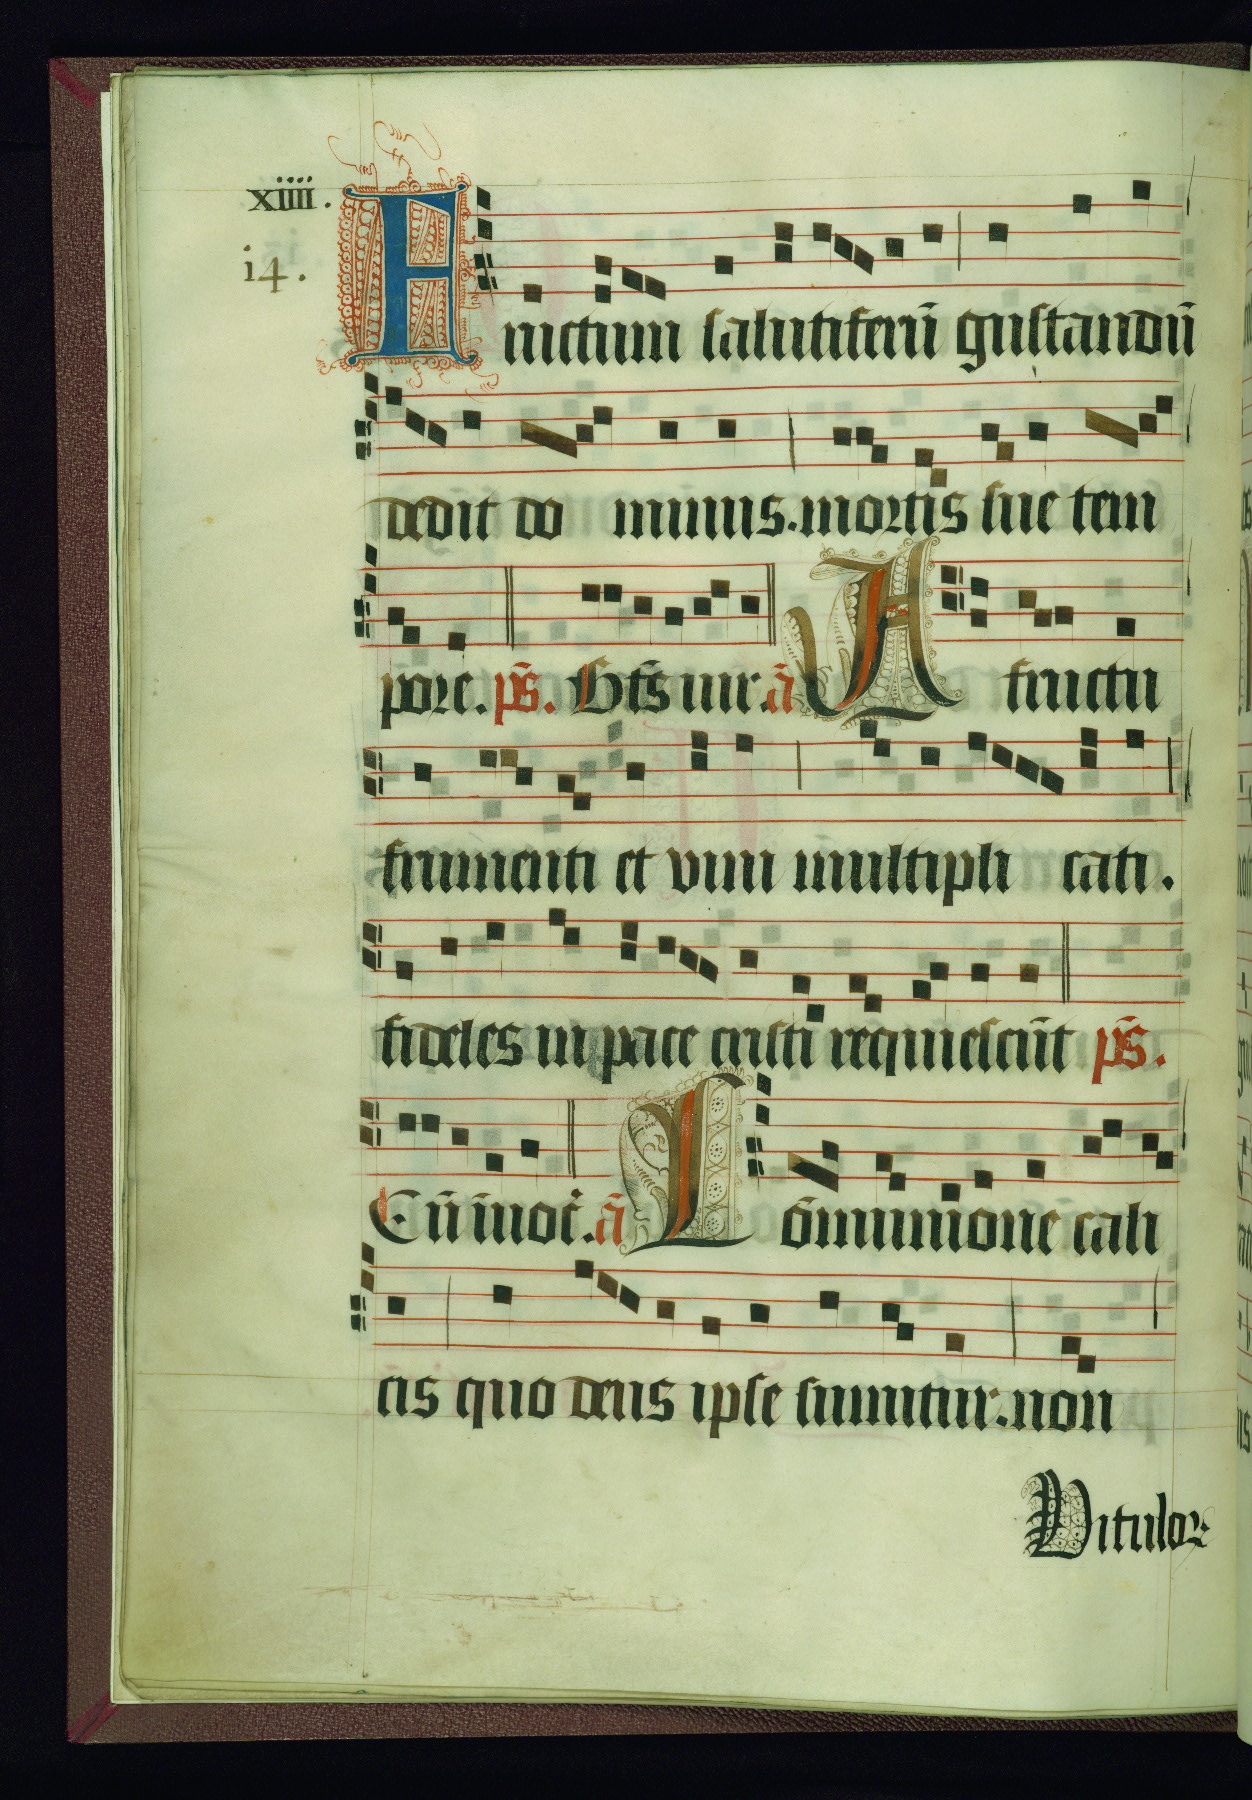 xiiii.
i4.
Fructum salutiferū gustandū
dedit do minus. mortis sue tem
pore. ps̄. Bt̄s uir. ā A fructu
frumenti et vini multipli cati.
fideles in pace cristi requiescūt ps̄.
Cū īuoc̄. ā Cōmunione cali
cis quo deus ipse sumitur. non
Vitulor